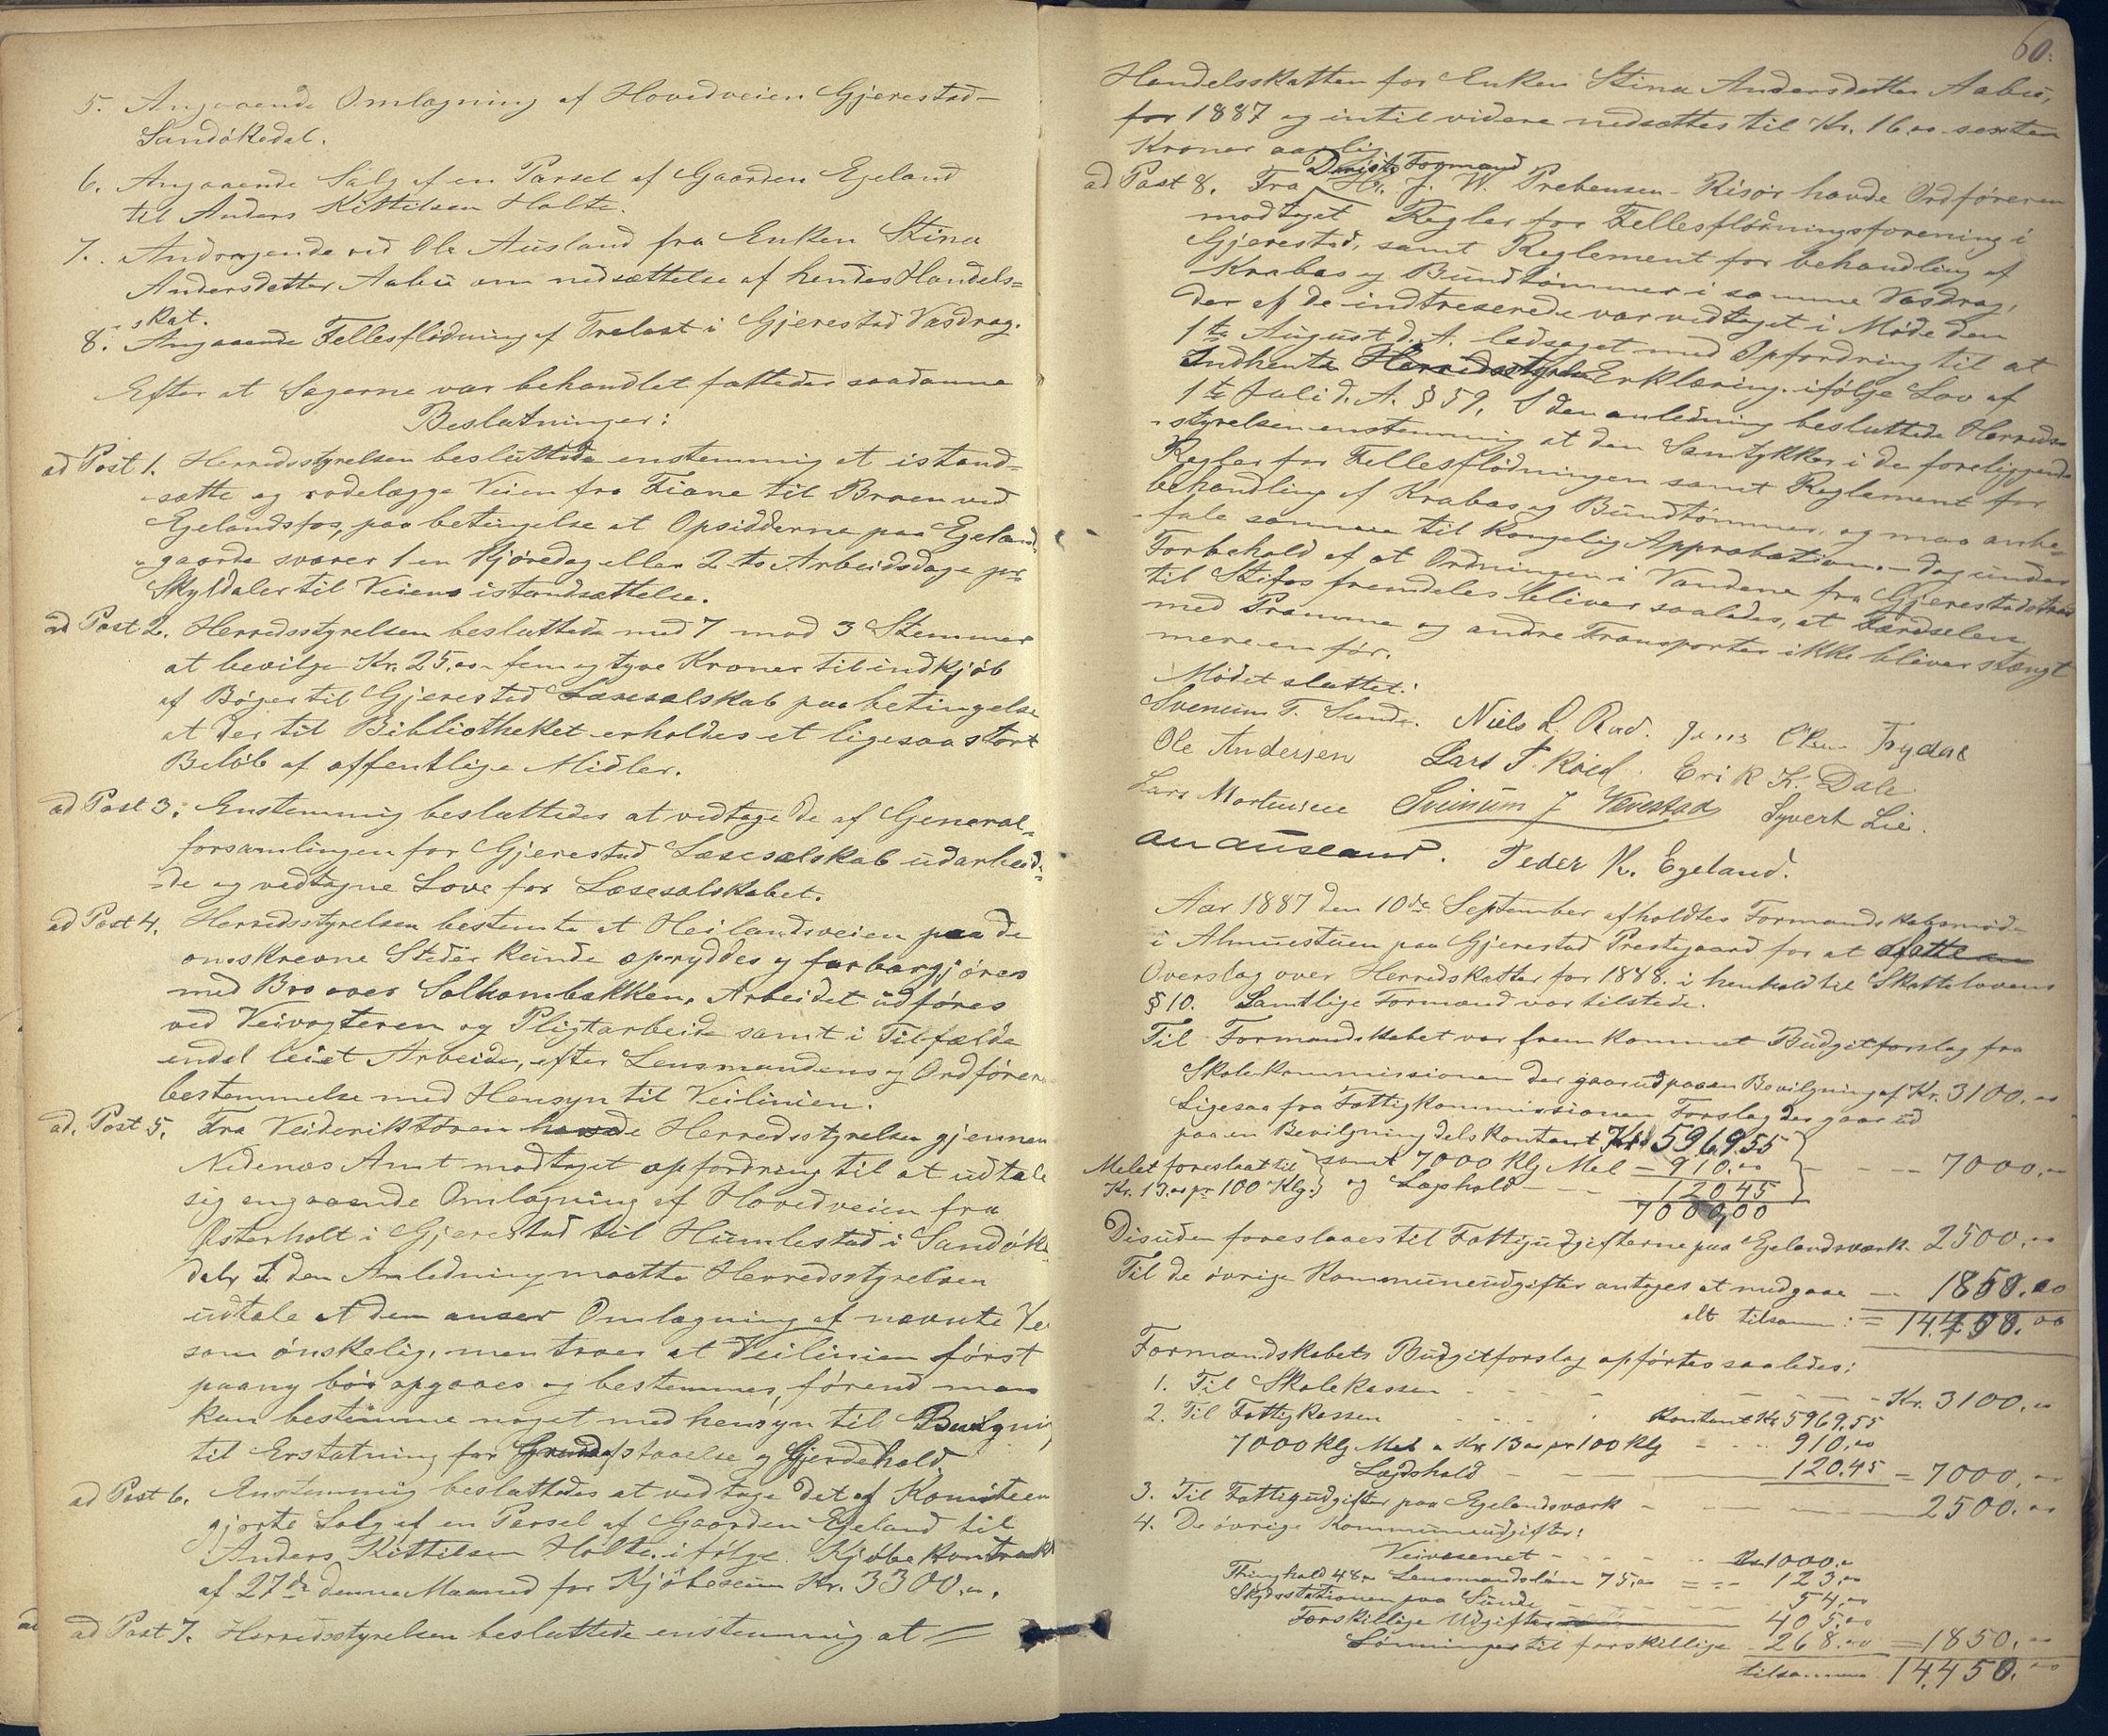 5. Angaaende Omlægning af Hovedveien Gjerestad-
Sandökedal.
6. Angaaende Salg af en Parsel af Gaarden Egeland
til Anders Kittelsen Holte.
7. Andragende ved Ole Ausland fra Enken Stina
Andersdetter Aabü om nedsættelse af hendes Handels=
skat.
8. Angaaende Fellesflödning af Trelast i Gjerestad Vasdrag.
Efter at Sagerne var behandlet fattedes saadanne
Beslutninger:
ad Post 1. Herredsstyrelsen besluttede enstemmig at istand=
sætte og rodelægge Veien fra Fiane til Broen ved
Egelandsfos, paa betingelse at Opsidderne paa Egelands
gaarde svarer 1 en Kjöredag eller 2 to Arbeidsdage pr
Skyldaler til Veiens istandsættelse.
ad Post 2. Herredsstyrelsen besluttede med 7 mod 3 Stemmer
at bevilge Kr. 25.00 fem og tyve Kroner til indkjöb
af Böger til Gjerestad Læseselskab paa betingelse
at der til Bibliotheket erholdes et ligesaa stort
Belöb af offentlige Midler.
ad Post 3. Enstemmig besluttedes at vedtage de af General=
forsamlingen for Gjerestad Læseselskab udarbeid=
=de og vedtagne Love for Læseselskabet.
ad Post 4. Herredsstyrelsen bestemte at Heilandsveien paa de
omskrevne Steder kunde opryddes og farbargjöres
med Bro over Solhombækken. Arbeidet udföres
ved Veivogteren og Pligtarbeide samt i Tilfælde
endel leiet Arbeide, efter Lensmandens og Ordförerens
bestemmelse med Hensyn til Veilinien.
ad. Post 5. Fra Veideriktören havde Herredsstyrelsen gjennem
Nedenæs Amt modtaget opfordring til at udtale
sig angaaende Omlægning af Hovedveien fra
Østerholt i Gjerestad til Humlestad i Sandöke
dal. I den Anledning maatte Herredsstyrelsen
udtale at den anser Omlægning af nævnte Vei
som önskelig, men troer at Veilinien först
paany bör opgaaes og bestemmes, förend man
kan bestemme noget med hensyn til Bevilgning
til Erstatning for Grundafstaaelse og Gjerdehold.
ad Post 6. Enstemmig besluttedes at vedtage det af Komiteen
gjorte Salg af en Parsel af Gaarden Egeland til
Anders Kittilsen Holte ifölge Kjöbekontrakt
af 27de denne Maaned for Kjöbesum Kr. 3300.00.
ad Post 7. Herredsstyrelsen besluttede enstemmig at
60.
Handelsskatten for Enken Stina Andersdetter Aabü,
for 1887 og intil videre nedsættes til Kr. 16.00 sexten
Kroner aarlig.
Dirists Formand
ad Post 8. Fra Hr. J. W. Prebensen - Risör havde Ordföreren
modtaget Regler for Fellesflödningsforening i
Gjerestad, samt Reglement for behandling af
Krabas og Bundtömmer i samme Vasdrag,
der af de indtreserede var vedtaget i Möde den
1te August d. A. ledsaget med Opfordring til at
Indhente Herredsstyrelse Erklæring ifölge Lov af
1te Juli d. A. § 59. I den anledning besluttede Herreds=
=styrelsen enstemmig at den Samtykker i de foreliggende
Regler for Fellesflödningen samt Reglement for
behandling af Krabas og Bundtömmer og maa anbe=
=fale samme til Kongelig Approbation. - dog under
Forbehold af at Ordningen i Vandene fra Gjerestadstrand
til Stifos fremdeles bliver saaledes, at Færdselen
med Pramme og andre Transporter ikke bliver stængt
mere en för.
Mödet sluttet.
Svenum T. Sunde. Niels L. Rød. Jens Olsen Trydal
Ole Andersen Lars T. Røed. Erik K. Dale
Lars Mortensen Sveinum J Vævestad Syvert Lie.
An Ausland. Peder K. Egeland.
Aar 1887 den 10de September afholdtes Formandskabsmöde
i Almuestuen paa Gjerestad Prestegaard for at afatte en
Overslag over Herredskatter for 1888. i henhold til Skattelovens
§ 10. Samtlige Formænd var tilstede.
Til Formandskabet var fremkommet Budgetforslag fra
Skolekommissionen der gaar ud paa en Bevilgning af Kr. 3100.00
Ligesaa fra Fattigkommissionen Forslag der gaar ud
paa en Bevilgning dels kontant Kr 5969.55
Melet foreslaat til } samt 7000 Klg Mel = 910.00 - - - 7000.00
Kr. 13.00 pr 100 Klg. } og Lægshold - - 120.45
7000,00
Disuden foreslaaes til Fattigudgifterne paa Egelandsværk. 2500.00
Til de övrige Kommuneudgifter antages at medgaae - 1850.00
alt tilsamm: = 14.450.00
Formandskabets Budgetforslag opförtes saaledes:
1. Til Skolekassen - - - - Kr. 3100.00
2. Til Fattigkassen - - Kontant Kr 5969.55
7000 Klg Mel a Kr 13.00 pr 100 Klg - - 910.00
Lægdshold - - 120.45 = 7000.00
3. Til Fattigudgifter paa Egelandsværk - - - 2500.00
4. De övrige Kommuneudgifter:
Veivæsenet - - - - Kr 1000.00
Thinghold 48.00 Lensmandslön 75.00 = - 123.00
Skydsstationen paa Sunde - - - 54.00
Forskillige Udgifter - 405.00
Lönninger til forskillige 268.00 = 1850.00
tilsammen 14.450.00